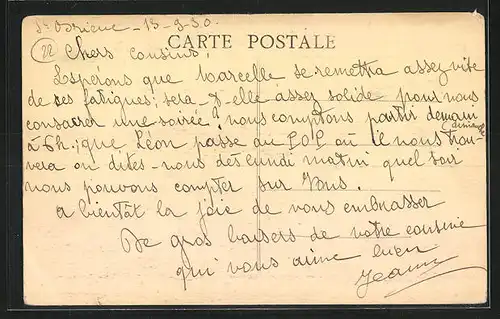 St Brieuc - 13-9-30.
(22)
CARTE POSTALE
Chers cousins,
Espérons que Marcelle se remettra assez vite
de ses fatigues; sera-t-elle assez solide pour nous
consacrer une soirée? nous comptons partir demain
dimanche
à 6h.; que Léon passe au P.O.P où il nous trou-
vera ou dites-nous dès lundi matin quel soir
nous pouvons compter sur Vous.
à bientôt la joie de vous embrasser
De gros baisers de votre cousine
qui vous aime bien
Jeanne